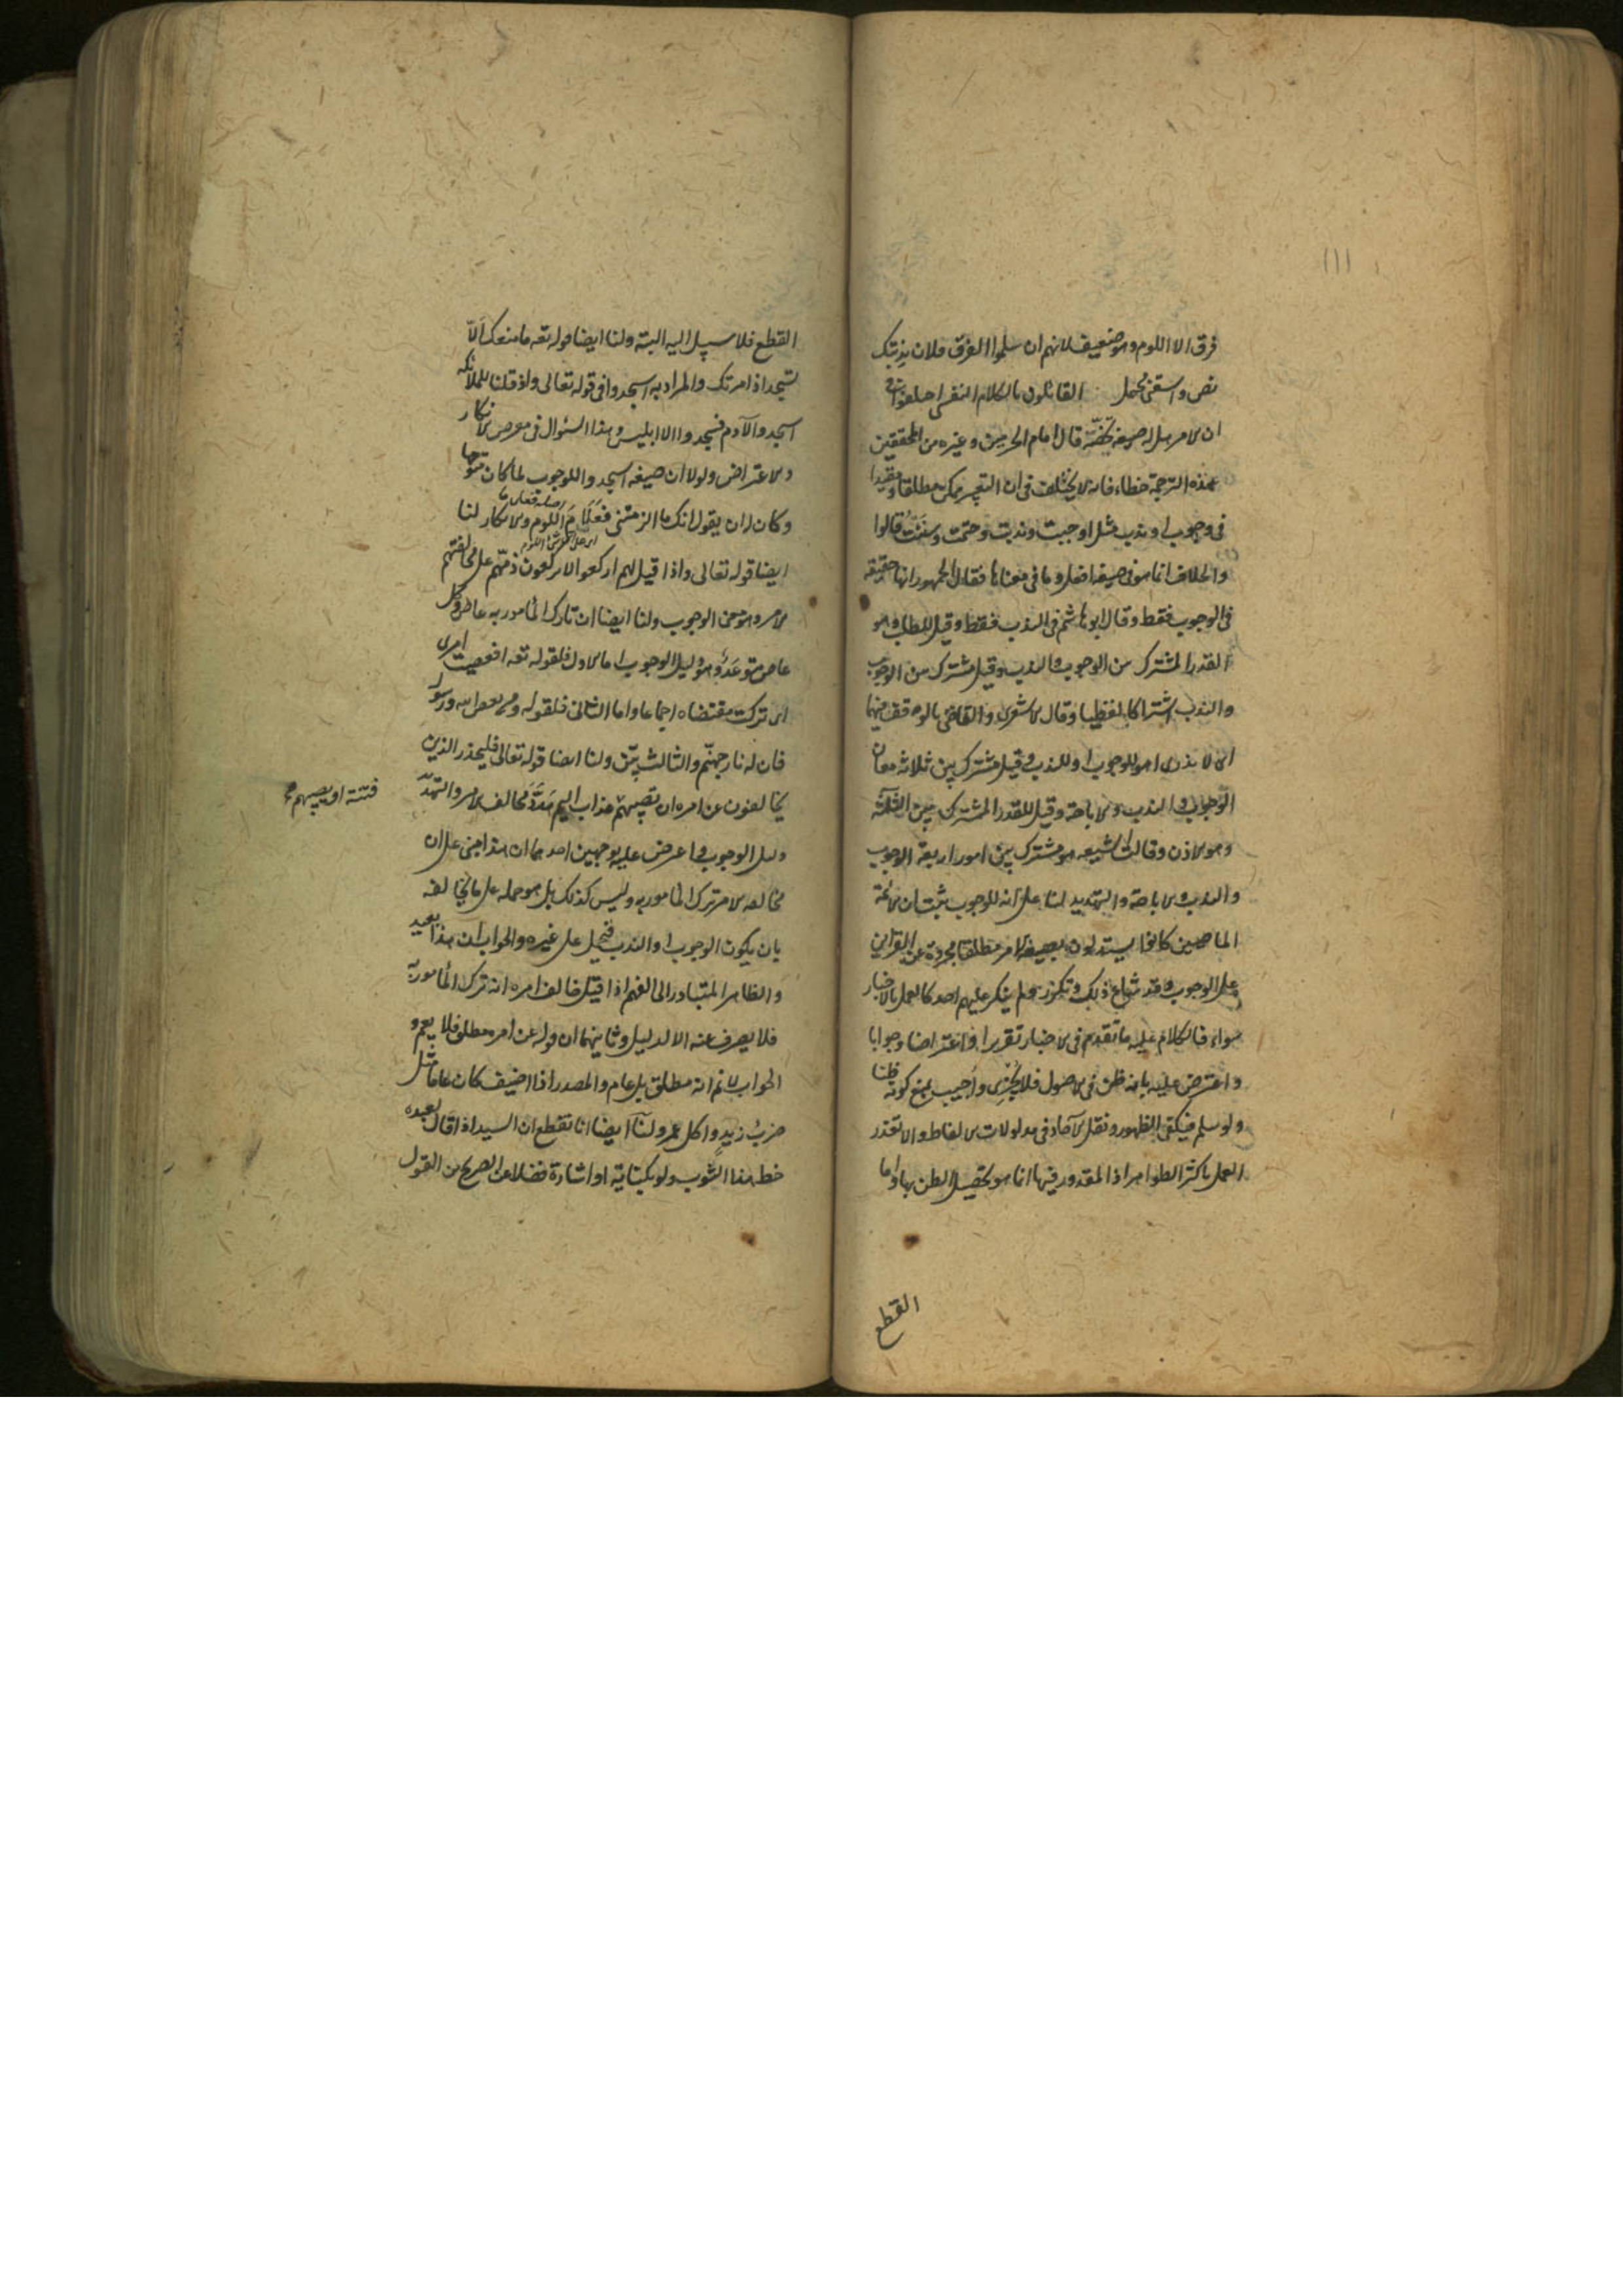 ١١١
فرق الا اللوم وهو ضعيف لانهم ان سلموا الفرق فلان يذبتك
نص واسقني محتمل القائلون بالكلام النفسي اختلفوا في
ان الامر هل له صيغة تخصّه قال امام الحرمين وغيره من المحققين
هذه الترجمة خطاء فانه لا يختلف في ان التعبير ممكن مطلقا ومقيدا
في وجوب او ندب مثل اوجبت وندبت وحتمت وسننت قالوا
والخلاف انما هو في صيغة افعل وما في معناها فقال الجمهور انها حقيقة
في الوجوب فقط وقال ابو هاشم في الندب فقط وقيل للطلب وهو
القدر المشترك بين الوجوب والندب وقيل مشترك بين الوجوب
والندب اشتراكا لفظيا وقال الاشعري والقاضي بالوقف فيهما
اي لا ندري اهو للوجوب او للندب وقيل مشترك بين ثلاثة معان
الوجوب والندب والاباحة وقيل للقدر المشترك بين الثلثة
وهو الاذن وقالت الشيعة هو مشترك بين امور اربعة الوجوب
والندب والاباحة والتهديد لنا على انه للوجوب ثبت ان الائمة
الماضين كانوا يستدلون بصيغة الامر مطلقا مجردة عن القرائن
على الوجوب وقد شاع ذلك وتكرر ولم ينكر عليهم احد كالعمل بالاخبار
سواء فالكلام عليه ما تقدم في الاخبار تقريرا واعتراضا وجوابا
واعترض عليه بانه ظن في الاصول فلا يجزي واجيب بمنع كونه ظنا
ولو سلم فيكفي الظهور ونقل الآحاد في مدلولات الالفاظ والا تعذر
العمل باكثر الظواهر اذ المقدور فيها انما هو تحصيل الظن بها واما
القطع
القطع فلا سبيل اليه البتة ولنا ايضا قوله تعه ما منعك الّا
تسجد اذ امرتك والمراد به اسجدوا في قوله تعالى واذ قلنا للملائكة
اسجدوا لآدم فسجدوا الا ابليس وهذا السئوال في معرض الانكار
والاعتراض ولولا ان صيغة اسجدوا للوجوب لما كان متوجها
وكان له ان يقول انك ما الزمتني فعلام اللوم والانكار لنا
ايضا قوله تعالى واذا قيل لهم اركعوا لا يركعون ذمّهم على مخالفتهم
الامر وهو معنى الوجوب ولنا ايضا ان تارك المأمور به عاص وكل
عاص متوعّد وهو دليل الوجوب اما الاول فلقوله تعه افعصيت امري
اي تركت مقتضاه اجماعا واما الثاني فلقوله ومن يعص الله ورسوله
فان له نار جهنّم والثالث بيّن ولنا ايضا قوله تعالى فليحذر الذين
يخالفون عن امره ان تصيبهم عذاب اليم هدّد مخالف الامر والتهديد
فتنة او يصيبهم
دليل الوجوب واعترض عليه بوجهين احدهما ان هذا مبني على ان
مخالفة الامر ترك المأمور به وليس كذلك بل هو حمله على ما يخالفه
بان يكون الوجوب او الندب فيحمل على غيره والجواب ان هذا بعيد
والظاهر المتبادر الى الفهم اذا قيل خالف امره انه ترك المأمور به
فلا يصرف عنه الا لدليل وثانيهما ان قوله عن امره مطلق فلا يعم و
الجواب لا نم انه مطلق بل عام والمصدر اذا اضيف كان عاما مثل
ضرب زيد واكل عمرو لنا ايضا انا نقطع ان السيد اذا قال لعبده
خط هذا الثوب ولو بكتابة او اشارة فضلا عن الصريح من القول